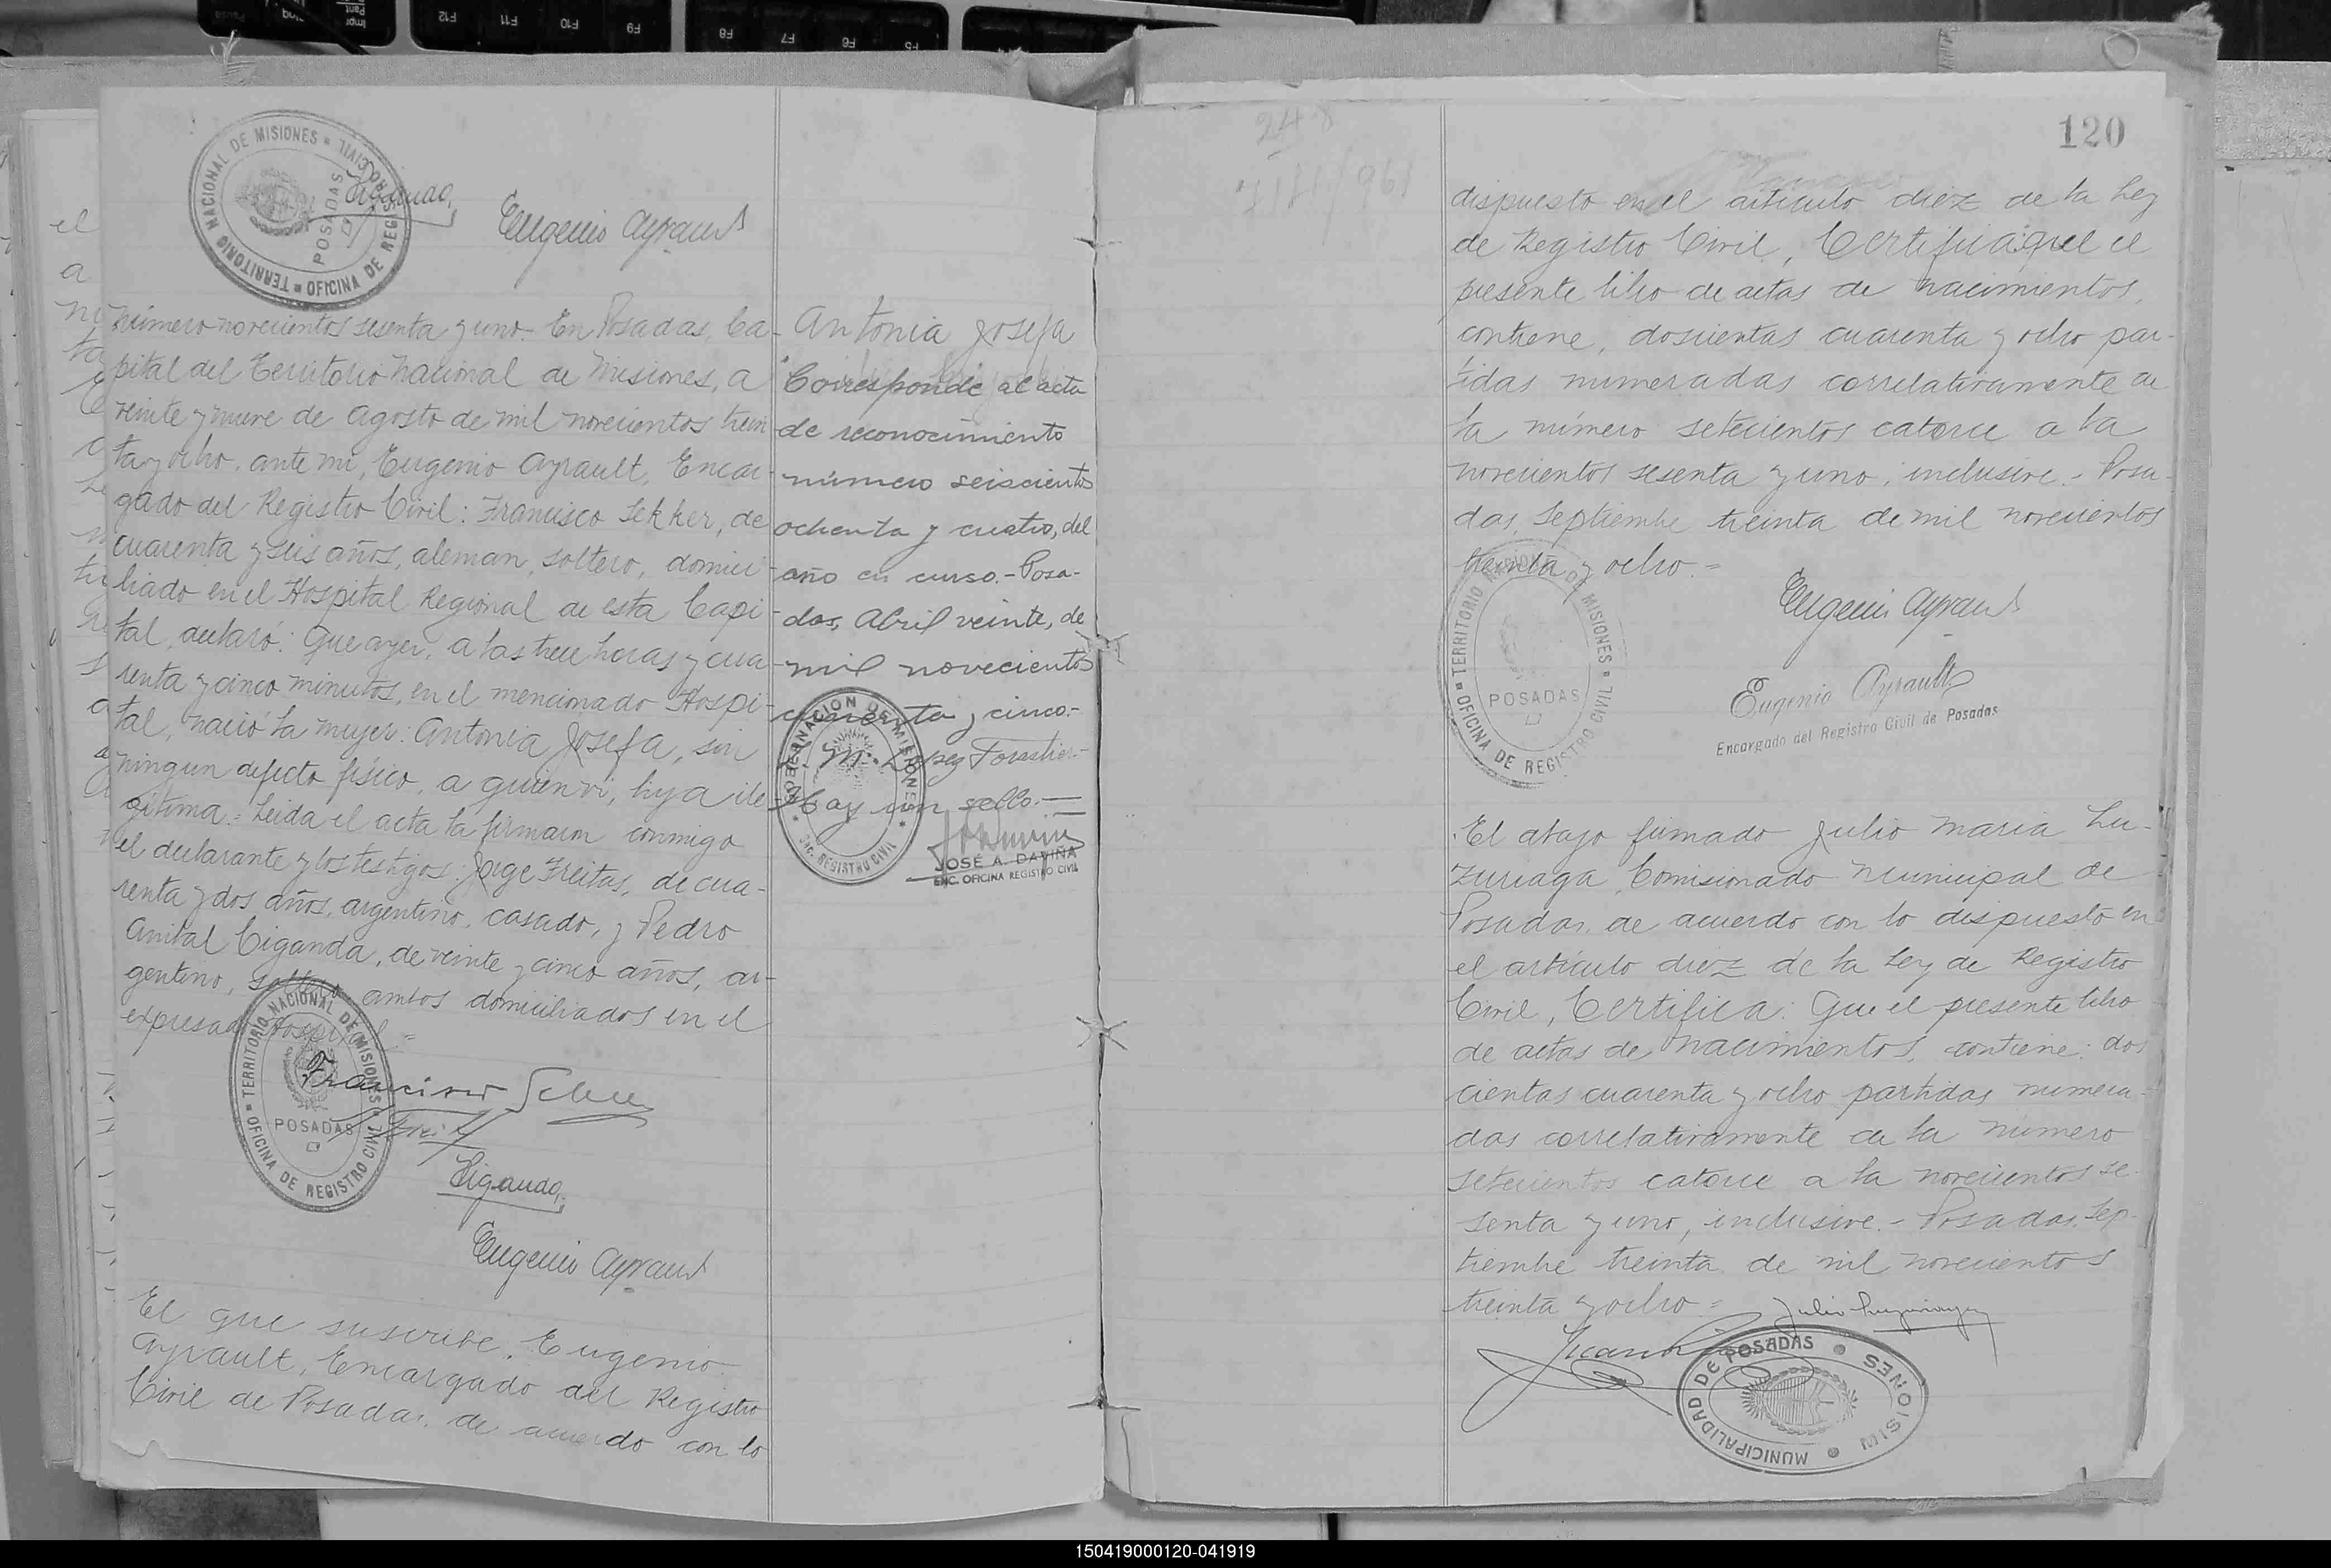 TERRITORIO NACIONAL DE MISIONES
OFICINA DE REGISTRO CIVIL
POSADAS
Ciganda
Eugenio Ayrault
Número novecientos sesenta y uno.- En Posadas, Ca-
pital del Territorio Nacional de Misiones, a
veinte y nueve de Agosto de mil novecientos trein
ta y ocho, ante mi, Eugenio Ayrault, Encar-
gado del Registro Civil: Francisco Sekker, de
cuarenta y seis años, aleman, soltero, domici-
liado en el Hospital Regional de esta Capi-
tal, declaró: Que ayer, a las trece horas y cua-
renta y cinco minutos, en el mencionado Hospi-
tal, nació la mujer: Antonia Josefa, sin
ningun defecto fisico, a quien vi, hija ile-
gitima.= Leida el acta la firmaron conmigo
el declarante y los testigos: Jorge Freitas, de cua-
renta y dos años, argentino, casado, y Pedro
Anibal Ciganda, de veinte y cinco años, ar-
gentino, soltero, ambos domiciliados en el
expresado Hospital.=
TERRITORIO NACIONAL DE MISIONES
OFICINA DE REGISTRO CIVIL
POSADAS
Francisco
Ciganda
Eugenio Ayrault
El que suscribe, Eugenio
Ayrault, Encargado del Registro
Civil de Posadas, de acuerdo con lo
Antonia Josefa
Corresponde al acta
de reconocimiento
número seiscientos
ochenta y cuatro, del
año en curso.- Posa-
das, Abril veinte, de
mil novecientos
cincuenta y cinco.-
M. Lopez Forastier.-
Hay un sello.-
GOBERNACION DE MISIONES
ENC. REGISTRO CIVIL
JOSÉ A. DAVIÑA
ENC. OFICINA REGISTRO CIVIL
248
120
dispuesto en el articulo diez de la Ley
de Registro Civil, Certifica: que el
presente libro de actas de nacimientos,
contiene, doscientas cuarenta y ocho par-
tidas numeradas correlativamente de
la número setecientos catorce a la
novecientos sesenta y uno, inclusive.- Posa-
das, Septiembre treinta de mil novecientos
treinta y ocho.=
TERRITORIO NACIONAL DE MISIONES
OFICINA DE REGISTRO CIVIL
POSADAS
Eugenio Ayrault
Eugenio Ayrault
Encargado del Registro Civil de Posadas
El abajo firmado Julio Maria Lu-
zuriaga, Comisionado Municipal de
Posadas, de acuerdo con lo dispuesto en
el articulo diez de la Ley de Registro
Civil, Certifica: Que el presente libro
de actas de nacimientos, contiene: dos
cientas cuarenta y ocho partidas numera-
das correlativamente de la número
setecientos catorce a la novecientos se-
senta y uno, inclusive.- Posadas, Sep-
tiembre treinta de mil novecientos
treinta y ocho.=
Julio Luzuriaga
MUNICIPALIDAD DE POSADAS
MISIONES
150419000120-041919